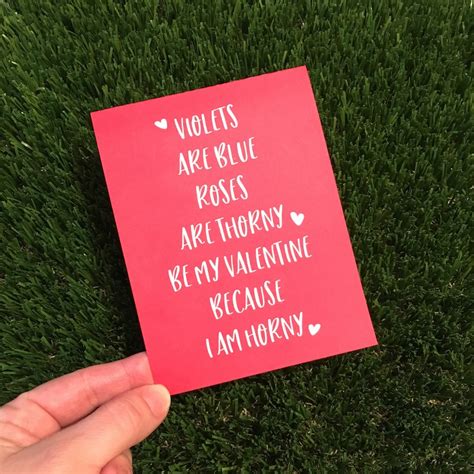 VIOLETS
ARE BLUE
ROSES
ARE THORNY
BE MY VALENTINE
BECAUSE
I AM HORNY